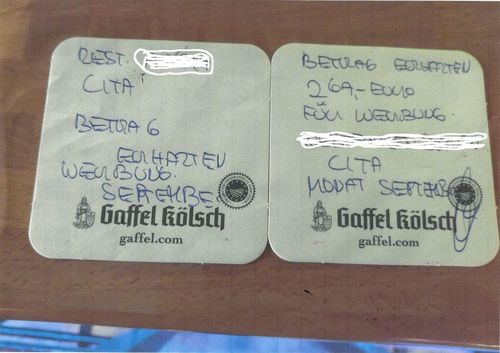 REST.
CITA
BETRAG
ERHALTEN
WERBUNG.
SEPTEMBER
Gaffel Kölsch
gaffel.com
BETRAG ERHALTEN
269,- EURO
FÜR WERBUNG
CITA
MONAT SEPTEMBER
Gaffel Kölsch
gaffel.com